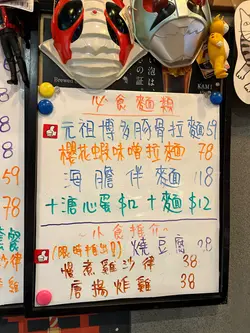 必食麵類
元祖博多豚骨拉麵 59
櫻花蝦味噌拉麵 78
海膽伴麵 118
+溏心蛋 $12 +麵 $12
~小食推介~
(限時推出!) 燒豆腐 28
慢煮雞沙律 38
唐揚炸雞 38
KAMI
8
8
59
78